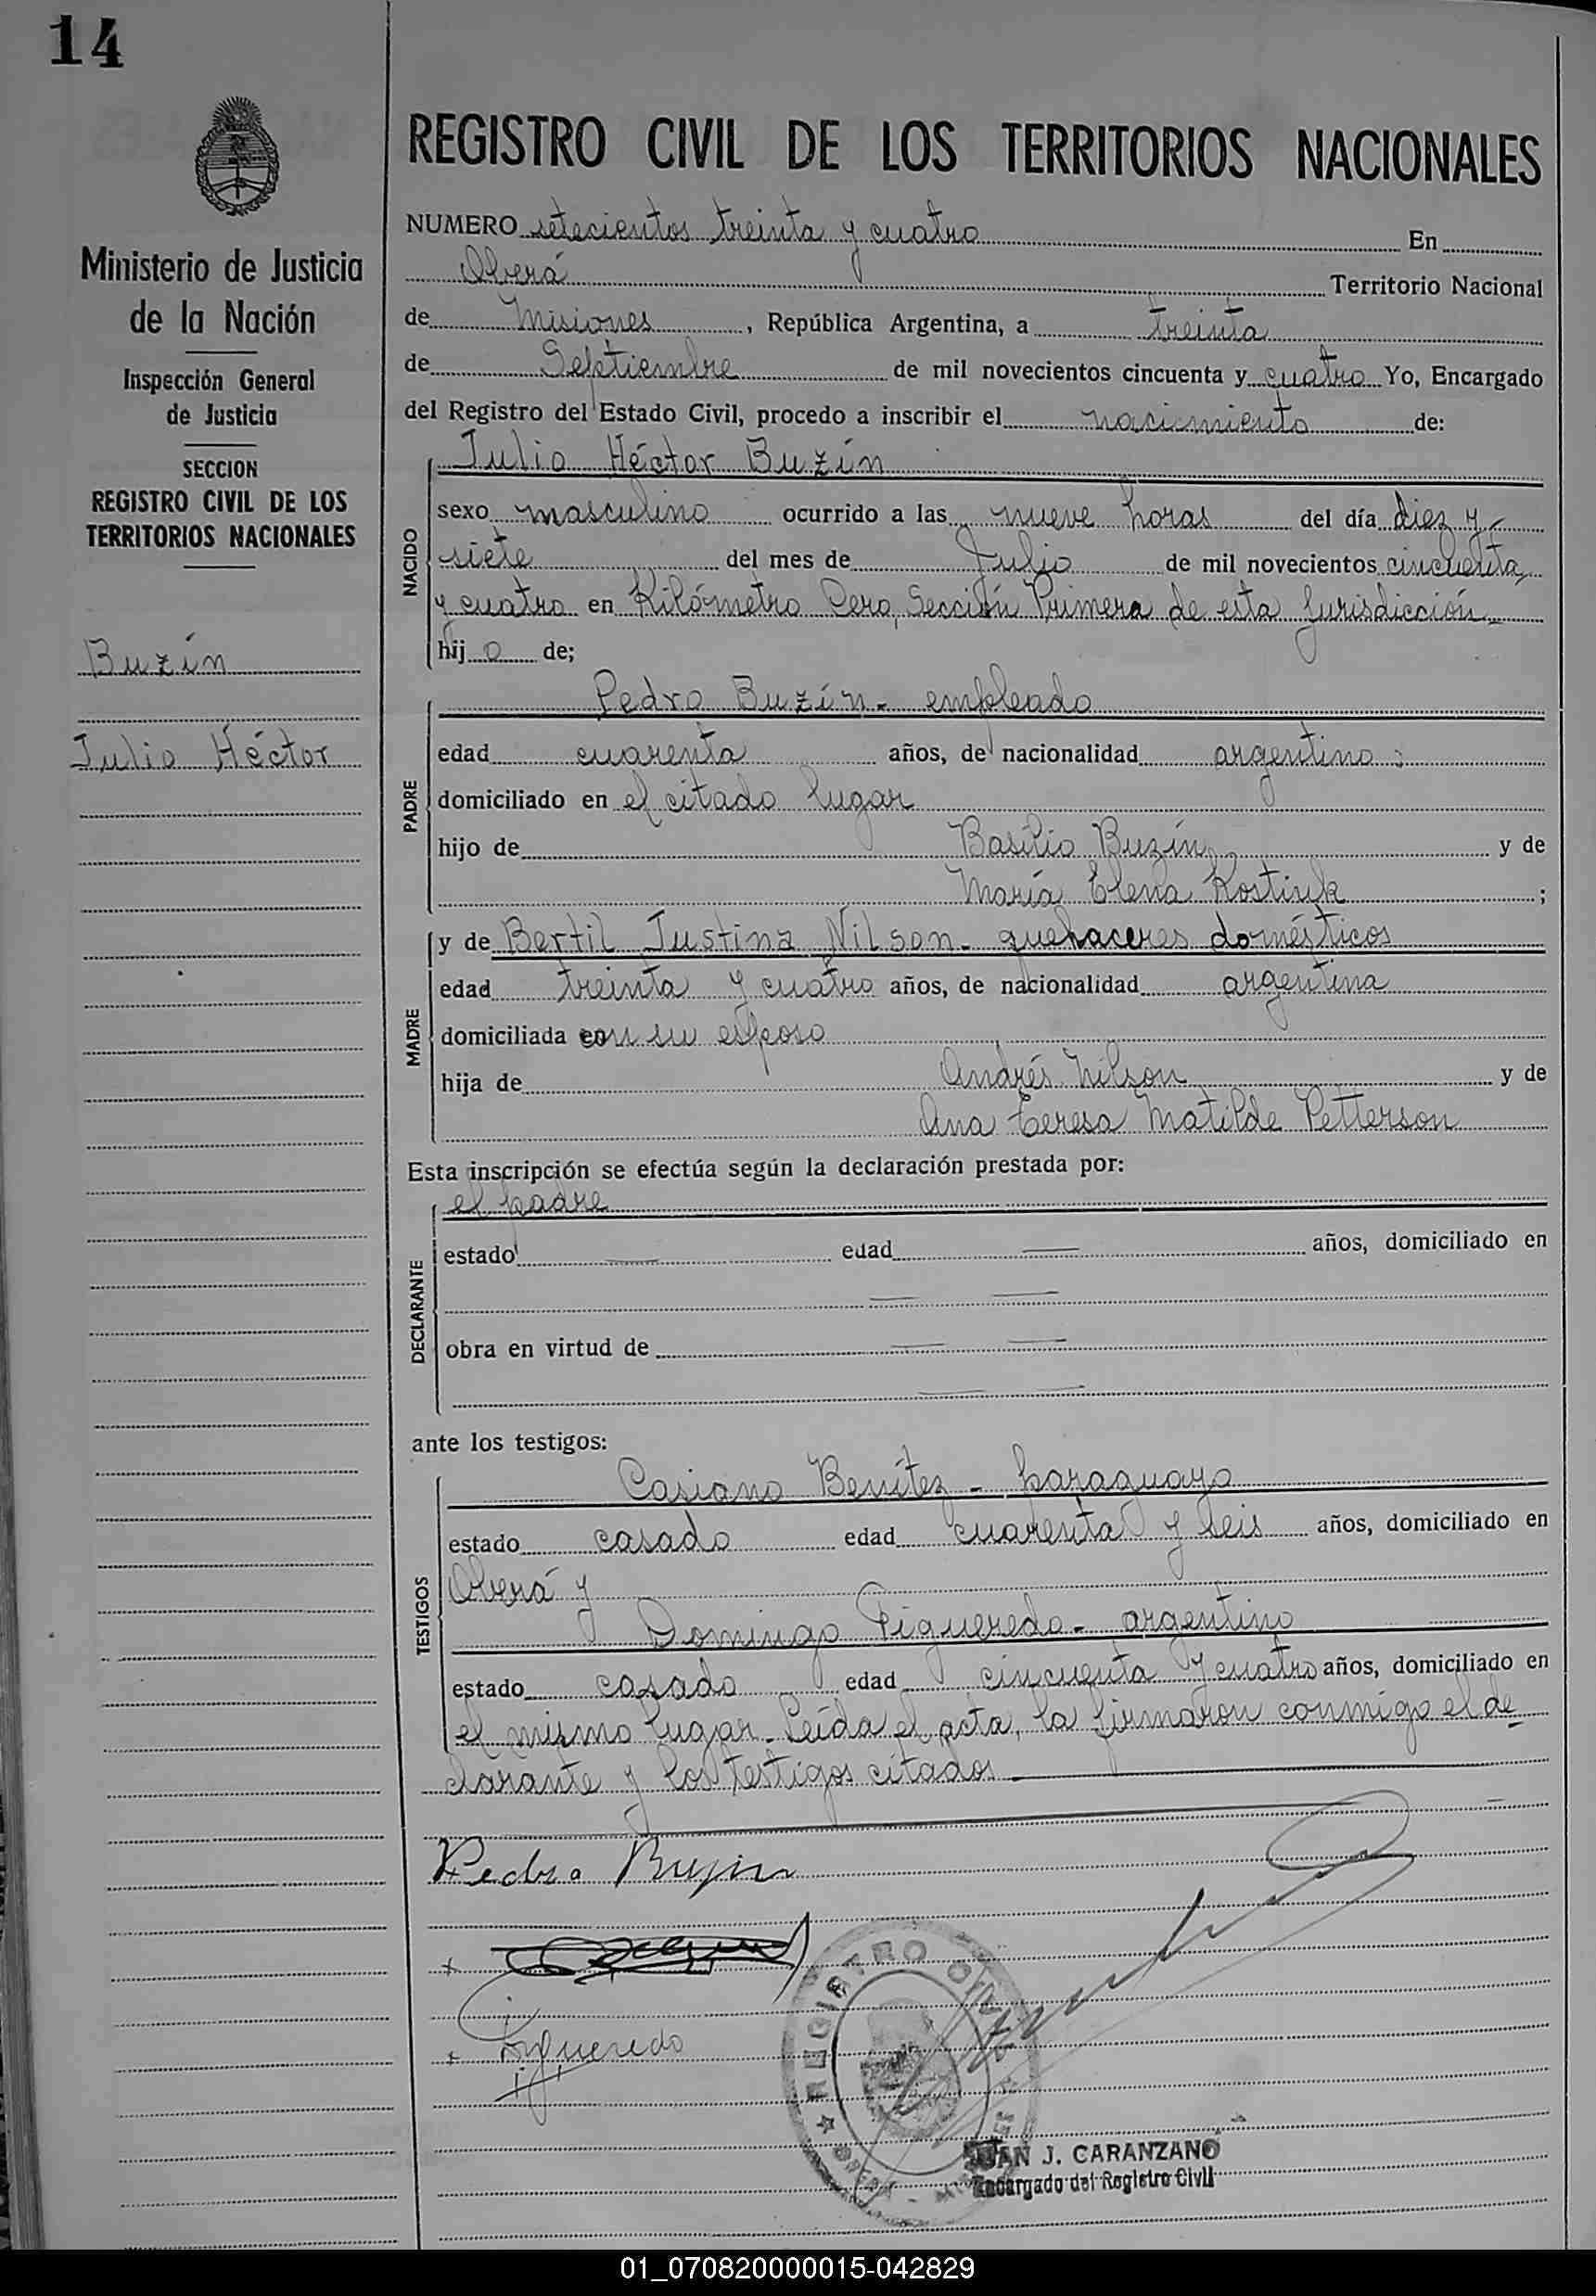 14
REGISTRO CIVIL DE LOS TERRITORIOS NACIONALES
Ministerio de Justicia
de la Nación
Inspección General
de Justicia
SECCION
REGISTRO CIVIL DE LOS
TERRITORIOS NACIONALES
Buzín
Julio Héctor
NUMERO setecientos treinta y cuatro En
Oberá Territorio Nacional
de Misiones, República Argentina, a treinta
de Septiembre de mil novecientos cincuenta y cuatro Yo, Encargado
del Registro del Estado Civil, procedo a inscribir el nacimiento de:
NACIDO
Julio Héctor Buzín
sexo masculino ocurrido a las nueve horas del día diez y
siete del mes de Julio de mil novecientos cincuenta
y cuatro en Kilómetro Cero, Sección Primera de esta Jurisdicción
hijo de;
PADRE
Pedro Buzín - empleado
edad cuarenta años, de nacionalidad argentino:
domiciliado en el citado lugar
hijo de Basilio Buzín y de
María Elena Kostiuk;
MADRE
y de Bertil Justina Nilson - quehaceres domésticos
edad treinta y cuatro años, de nacionalidad argentina
domiciliada con su esposo
hija de Andrés Nilson y de
Ana Teresa Matilde Petterson
Esta inscripción se efectúa según la declaración prestada por:
DECLARANTE
el padre
estado — edad — años, domiciliado en
— —
obra en virtud de — —
— —
ante los testigos:
TESTIGOS
Casiano Benítez - paraguayo
estado casado edad cuarenta y seis años, domiciliado en
Oberá y
Domingo Figueredo - argentino
estado casado edad cincuenta y cuatro años, domiciliado en
el mismo lugar - Leída el acta, la firmaron conmigo el de
clarante y los testigos citados
Pedro Buzin
Figueredo
REGISTRO CIVIL
JUAN J. CARANZANO
Encargado del Registro Civil
01_070820000015-042829